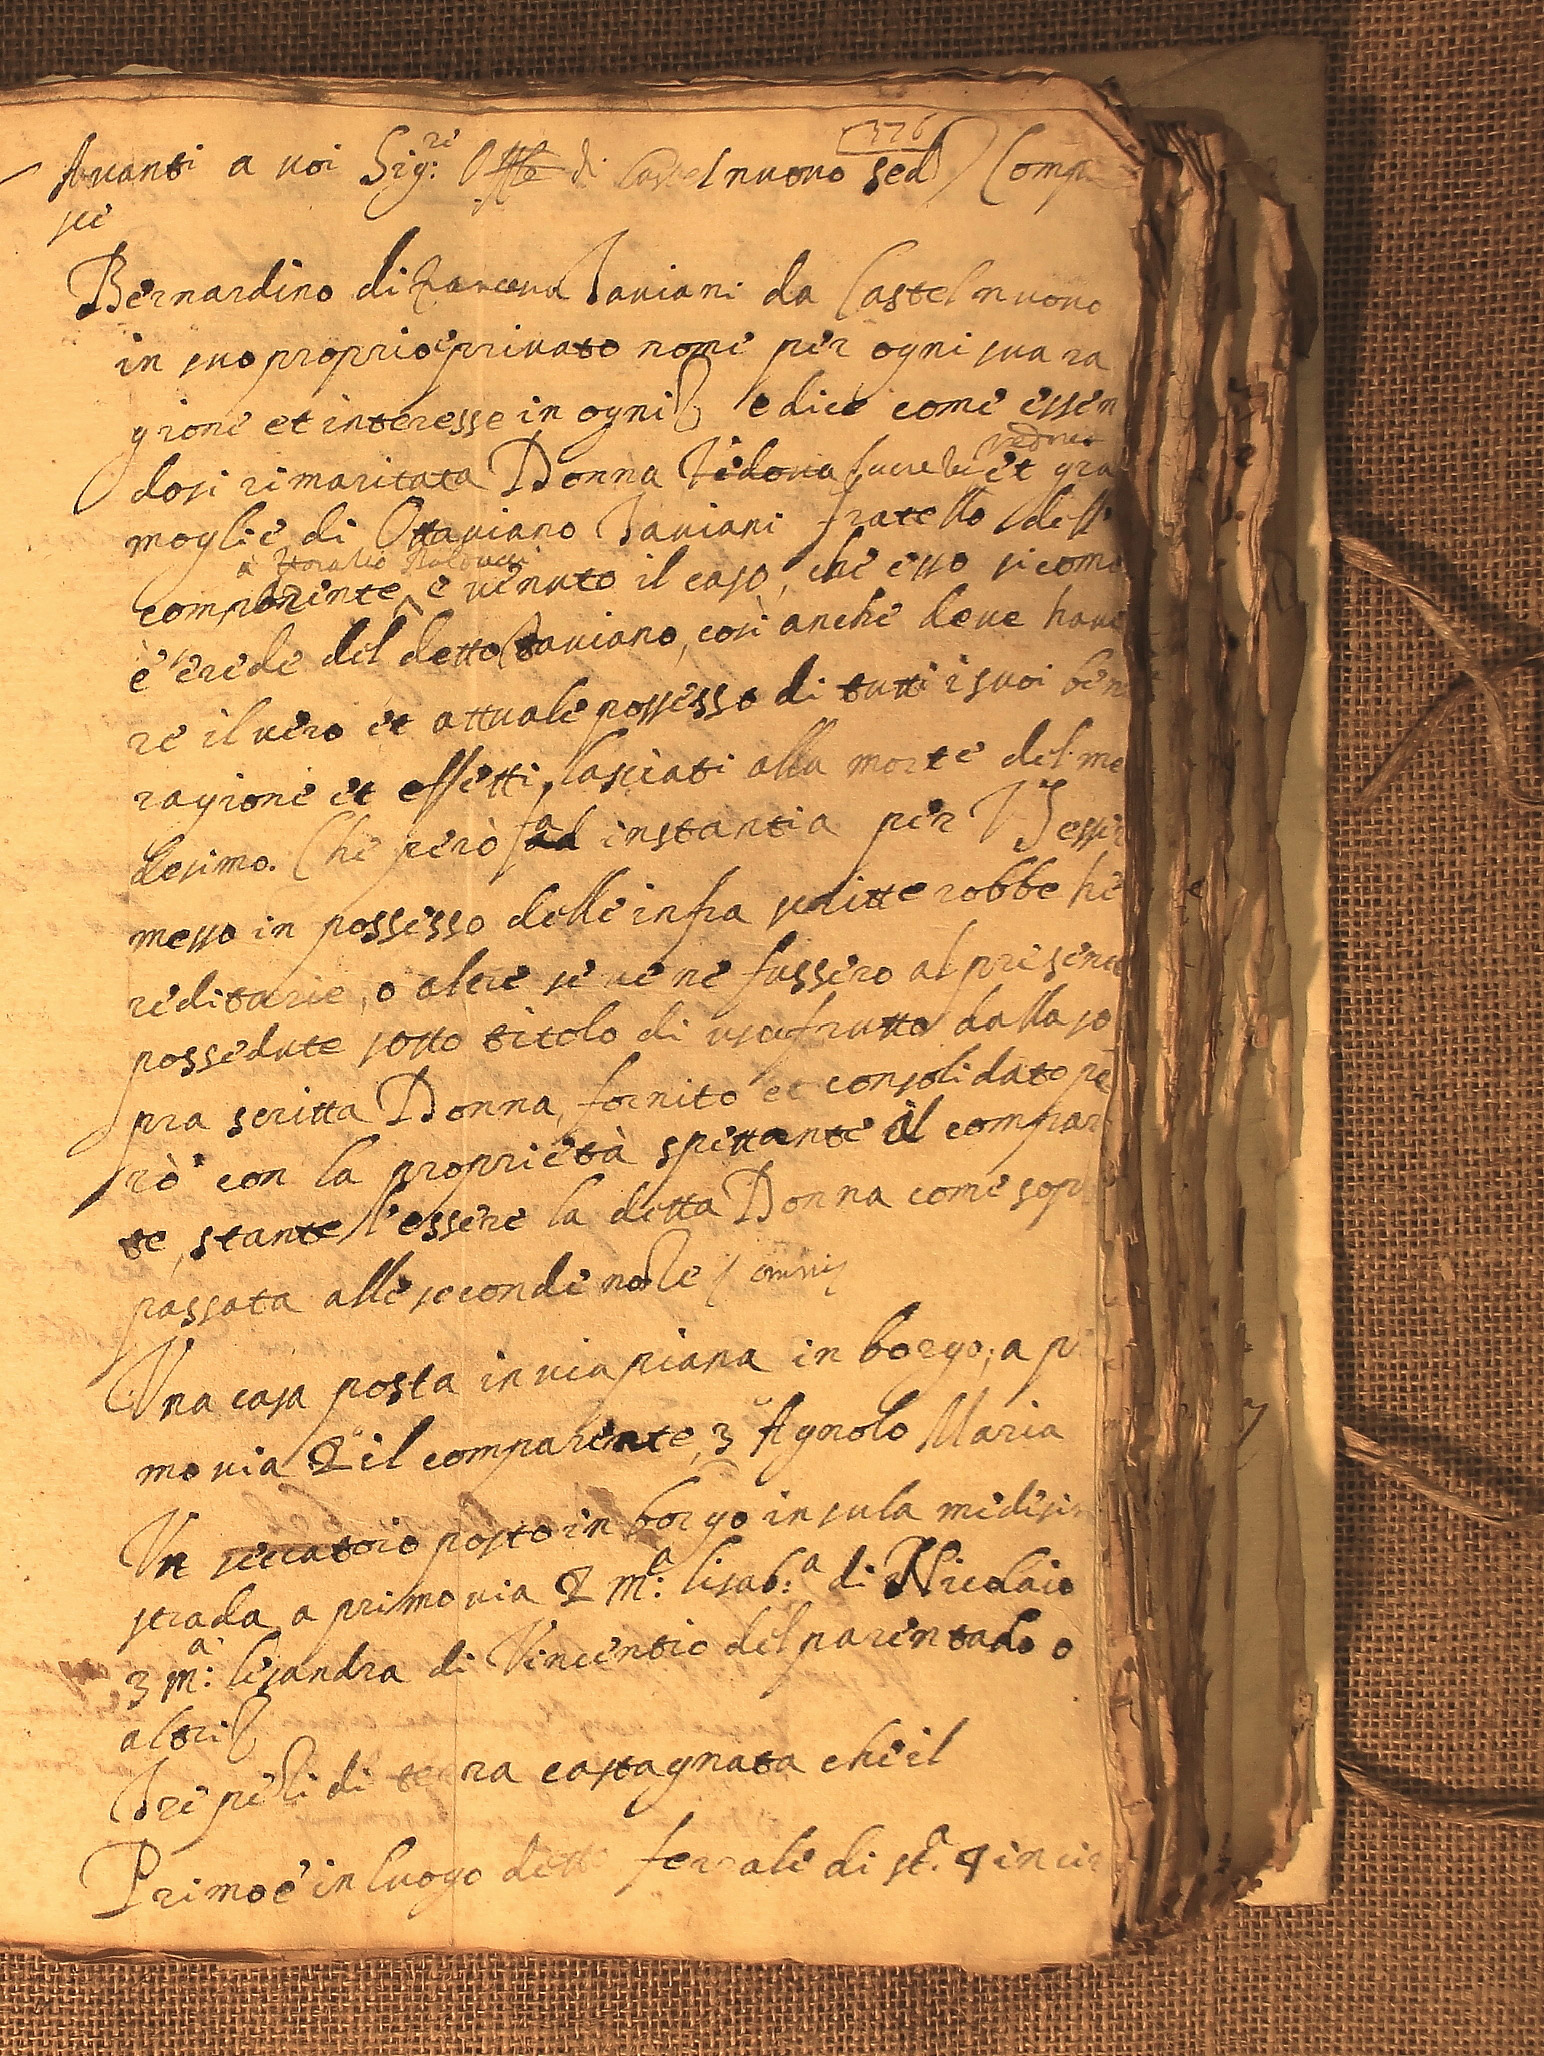 376
Avanti a voi Sig.re Offle di Castelnuovo sed Comp
sce
Bernardino di Taviani da Castelnuovo
in suo proprio e privato nome per ogni sua ra
gione et interesse in ogni e dice come essen
vedova
dosi rimaritata Donna et gia
moglie di Ottaviano Taviani fratello dell
a Horatio
comparente è venuto il caso, che esso si come
è erede del detto Ottaviano, così anche deve have
re il vero et attuale possesso di tutti i suoi beni
ragione et effetti lasciati alla morte del me
desimo. Che però fa instantia per VS esser
messo in possesso delle infra scritte robbe he
reditarie, o altre se ve ne fussero al presente
possedute sotto titolo di usufrutto dalla so
pra scritta Donna, fornito et consolidato pe
rò con la proprietà spettante al comparen
te, stante l'essere la detta Donna come sopra
passata alle seconde nozze omnis
Una casa posta in via piana in borgo; a pri
mo via 2 il comparente, 3 Agnolo Maria
Un seccatoio posto in borgo in sula medesima
strada a primo via 2 m.a lisab.a di Nicolaio
3 m.a lisandra di Vincentio del parentado o
altri
Tre pezi di terra castagnata che il
Primo è in luogo detto ferrale di st.a 4 in cir